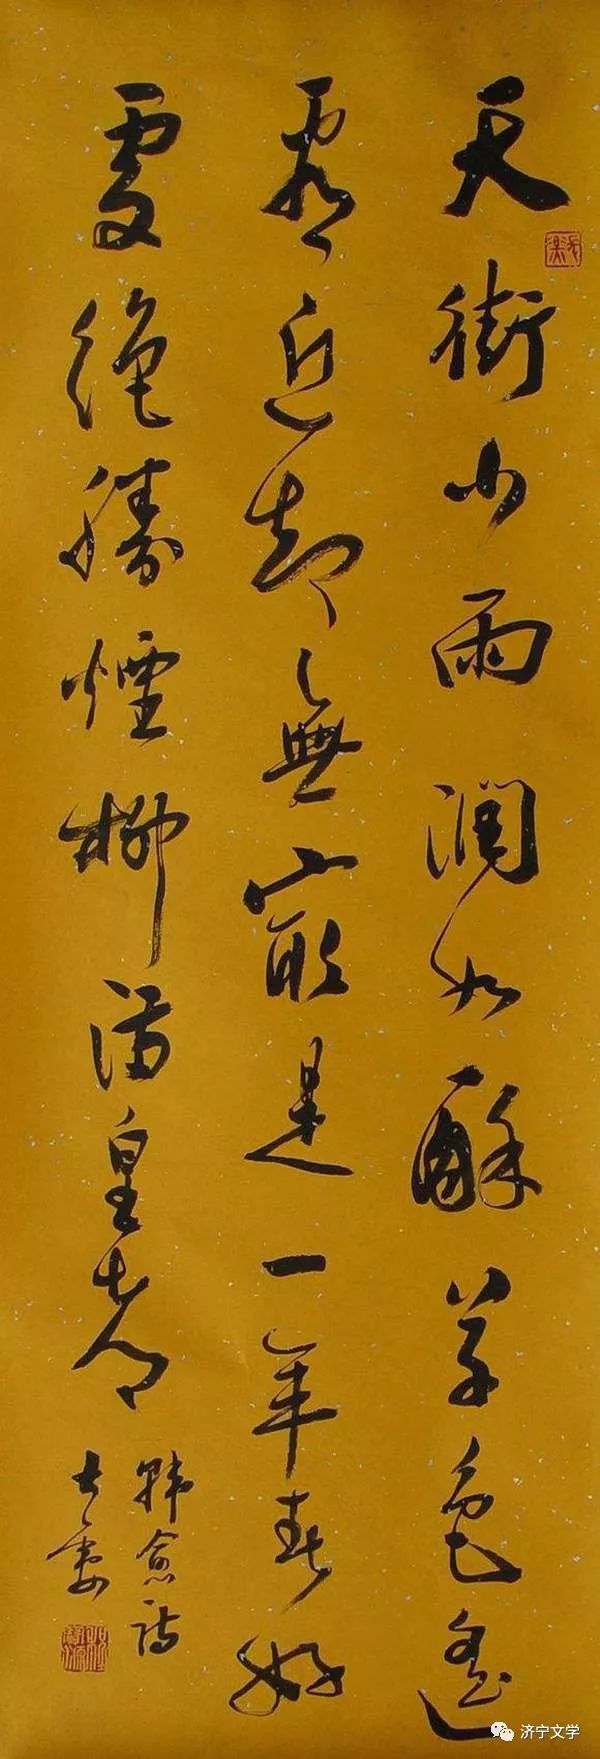 天街小雨潤如酥草色遙
看近却無最是一年春好
處絕勝煙柳滿皇都
韓愈詩
济宁文学